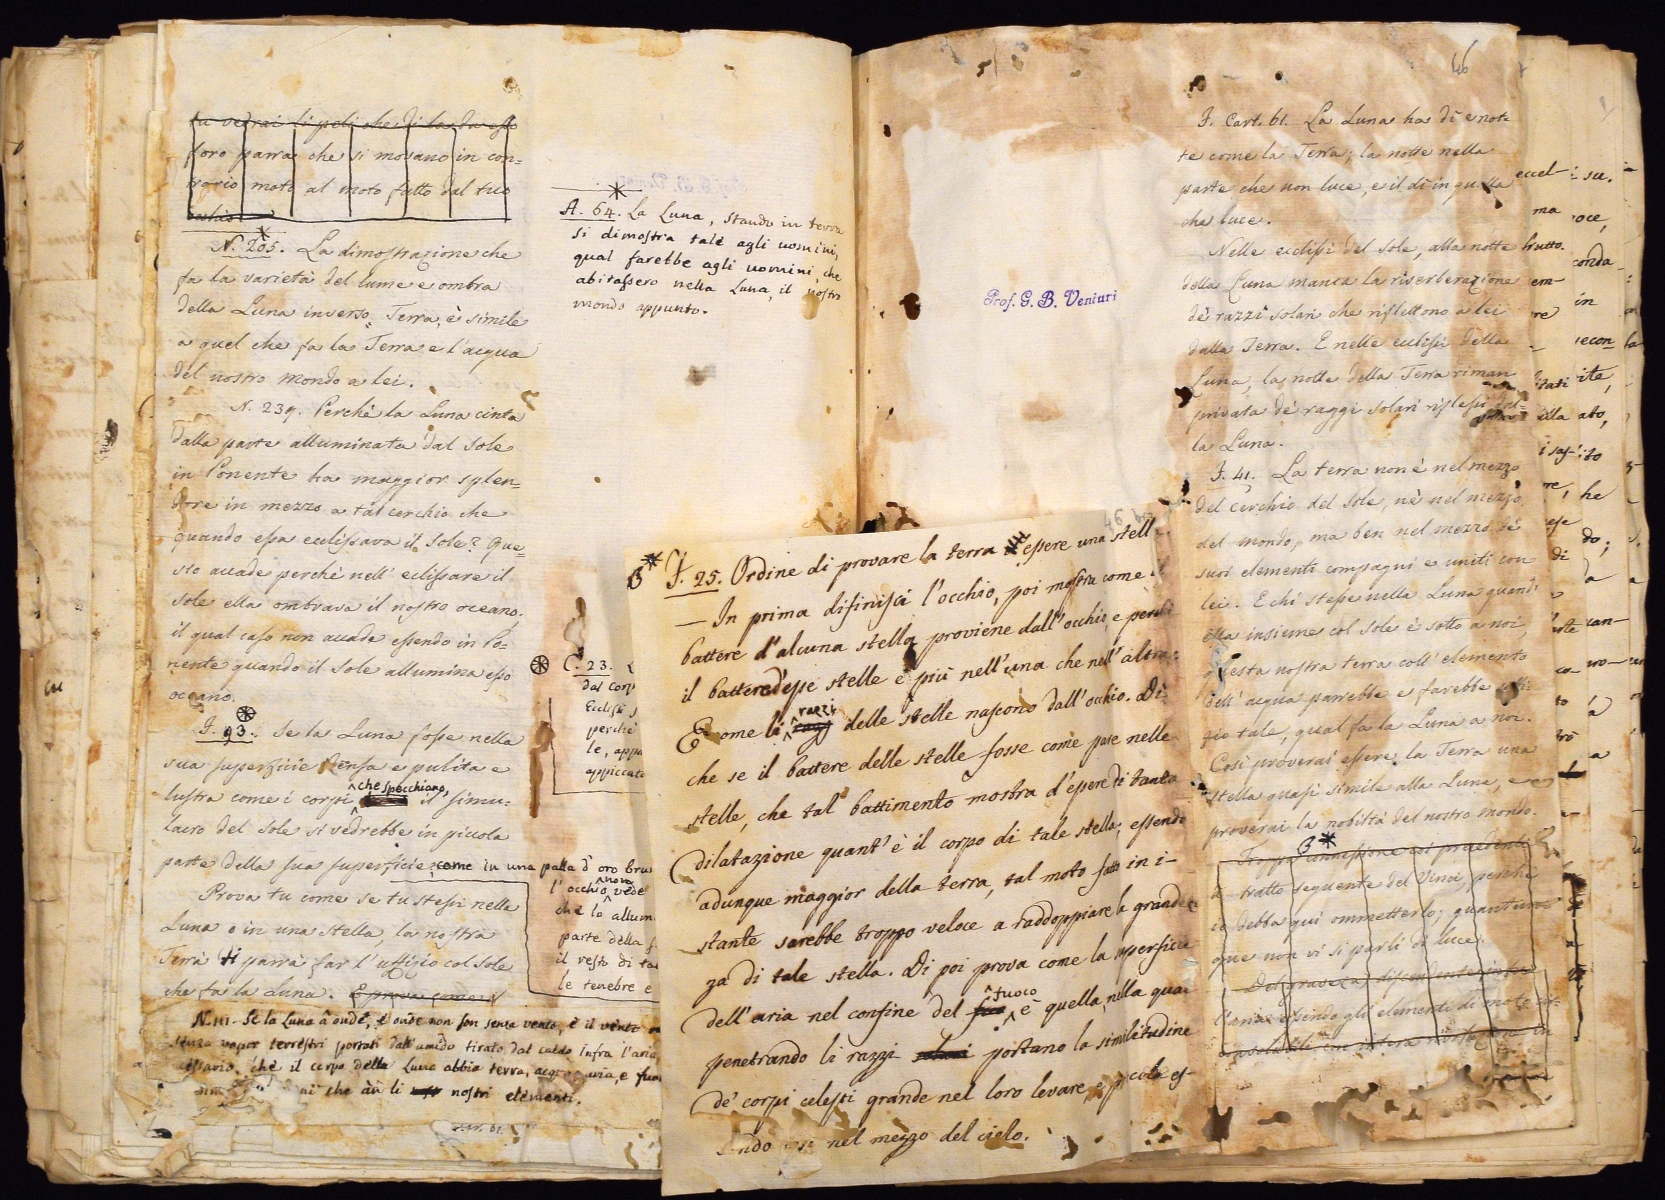 tu vedrai li peli che di la da esso
foro parrà che si movano in con=
trario moto al moto fatto dal tuo
N. 205. La dimostrazione che
fa la varietà del lume e ombra
della Luna inverso Terra, è simile
a quel che fa la Terra e l'acqua
del nostro mondo a lei.
N. 239. Perchè la Luna cinta
dalla parte alluminata dal Sole
in Ponente ha maggior splen=
dore in mezzo a tal cerchio che
quando essa eclissava il Sole? Que=
sto accade perchè nell'eclissare il
sole ella ombrava il nostro oceano,
il qual caso non accade essendo in Po=
nente quando il Sole allumina esso
oceano.
F. 93. Se la Luna fosse nella
sua superficie densa e pulita e
lustra come i corpi che specchiano, il simu=
lacro del Sole si vedrebbe in piccola
parte della sua superficie; come in una palla d'oro bru
l'occhio non vede
che lo allum
parte della s
il resto di ta
le tenebre e
Prova tu come se tu stessi nella
Luna o in una stella, la nostra
Terra ti parrà far l'uffizio col Sole
che fa la Luna. E prova come
N. 111. Se la Luna à onde, e onde non son senza vento, è il vento
senza vapor terrestri portati dall'umido tirato dal caldo infra l'aria
essario, che il corpo della Luna abbia terra, acqua, aria, e fuo
che àn li nostri elementi.
A. 64. La Luna, stando in terra
si dimostra tale agli uomini,
qual farebbe agli uomini, che
abitassero nella Luna, il nostro
mondo appunto.
C. 23.
dal corp
Eclissi s
perchè
le, appa
appiccata
Prof. G. B. Venturi
46 b
B F. 25. Ordine di provare la terra essere una stella
— In prima difinisci l'occhio, poi mostra come il
battere d'alcuna stella proviene dall'occhio, e perchè
il battere d'esse stelle è più nell'una che nell'altra:
E come li razzi delle stelle nascono dall'occhio. Di
che se il battere delle stelle fosse come pare nelle
stelle, che tal battimento mostra d'essere di tanta
dilatazione quant'è il corpo di tale stella; essendo
adunque maggior della terra, tal moto fatto in i—
stante sarebbe troppo veloce a raddoppiare la grandez
za di tale stella. Di poi prova come la superficie
dell'aria nel confine del fuoco è quella, nella qual
penetrando li razzi solari portano la similitudine
de' corpi celesti grande nel loro levare, e piccola es-
sendo essi nel mezzo del cielo.
46
F. Cart. 61. La Luna ha dì e not
te come la Terra; la notte nella
parte che non luce, e il dì in quella
che luce.
Nelle eclissi del Sole, alla notte
della Luna manca la riverberazione
de' razzi solari che riflettono a lei
dalla Terra. E nelle eclissi della
Luna, la notte della Terra riman
privata de' raggi solari riflessi dal=
la Luna.
F. 41. La terra non è nel mezzo
del cerchio del Sole, nè nel mezzo
del mondo, ma ben nel mezzo de'
suoi elementi compagni e uniti con
lei. E chi stesse nella Luna quand'
ella insieme col Sole è sotto a noi,
questa nostra terra coll'elemento
dell'acqua parrebbe e farebbe offi=
zio tale, qual fa la Luna a noi.
Così proverai essere la Terra una
stella quasi simile alla Luna, e
proverai la nobiltà del nostro mondo.
B
Troppa connessione col preceden
te tratto seguente del Vinci, perchè
io debba qui ommetterlo; quantun
que non vi si parli di luce.
Del grave discendente
l'aria, essendo gli elementi di moto